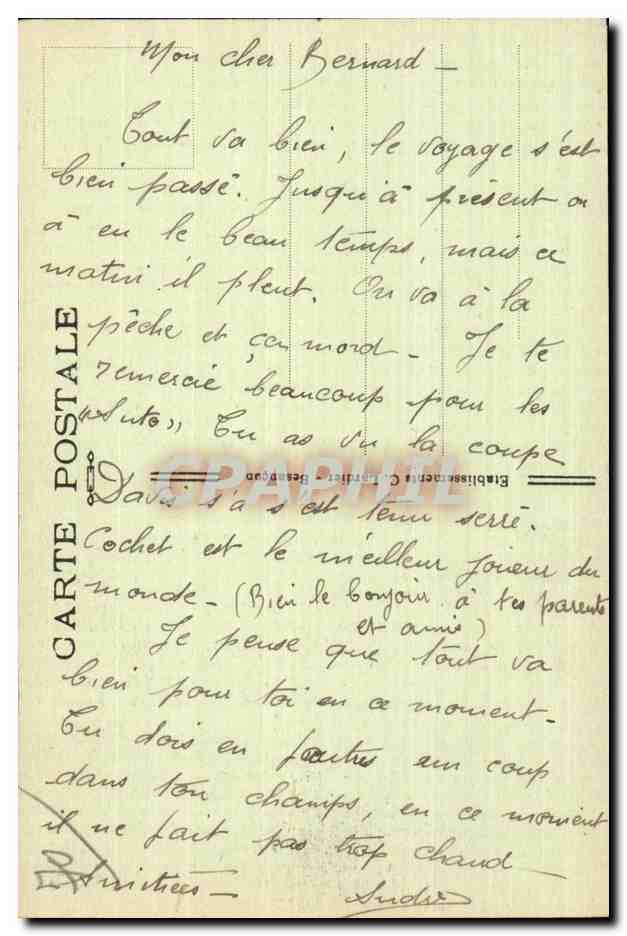 Mon cher Bernard -
Tout va bien, le voyage s'est
bien passé. Jusqu'à présent on
à eu le beau temps, mais ce
matin il pleut. On va à la
pêche et ça mord - Je te
remercie beaucoup pour les
"Auto" Tu as vu la coupe
Davis s'a s'est tenu serré.
Cochet est le meilleur joueur du
monde - (Bien le bonjour à tes parents
et amis)
Je pense que tout va
bien pour toi en ce moment -
Tu dois en foutres un coup
dans ton champs, en ce moment
il ne fait pas trop chaud -
Amitiées -
André
CARTE POSTALE
Etablissements C. Lardier - Besançon
CPAPHIL